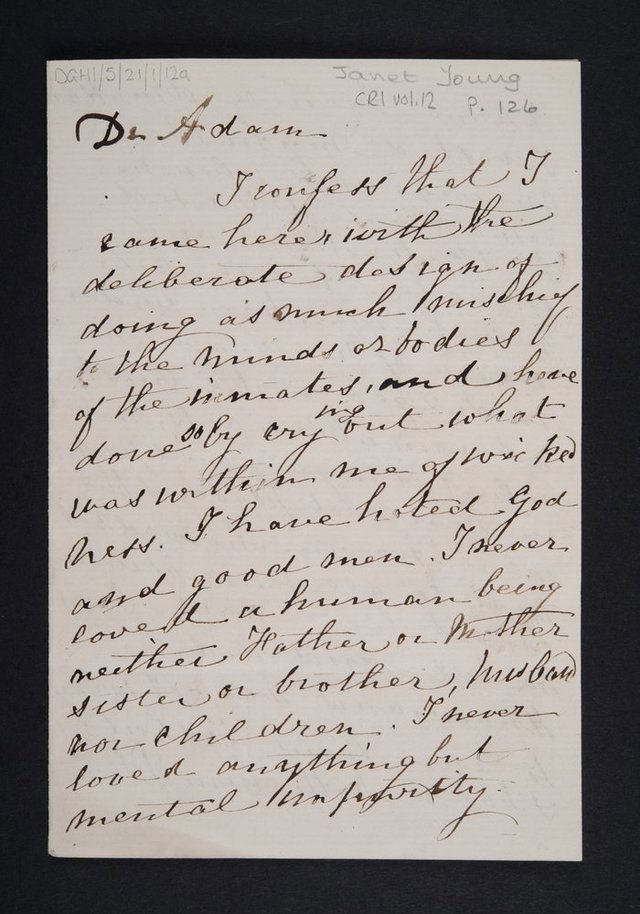 DGH1/5/21/1/12a
Janet Young
CRI vol.12 P. 126
Dr Adam
I confess that I
came here, with the
deliberate design of
doing as much mischief
to the minds or bodies
of the inmates, and have
done so by crying out what
was within me of wicked
ness. I have hated God
and good men. I never
loved a human being
neither Father or Mother
sister or brother, husband
nor children. I never
loved anything but
mental impurity.